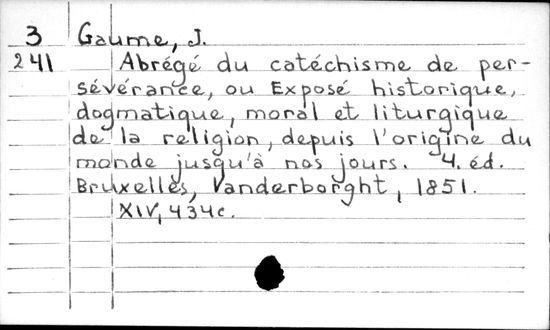 3 Gaume, J.
241 Abrégé du catéchisme de per-
sévérance, ou Exposé historique,
dogmatique, moral et liturgique
de la religion, depuis l'origine du
monde jusqu'à nos jours. 4. éd.
Bruxelles, Vanderborght, 1851.
XIV, 434c.